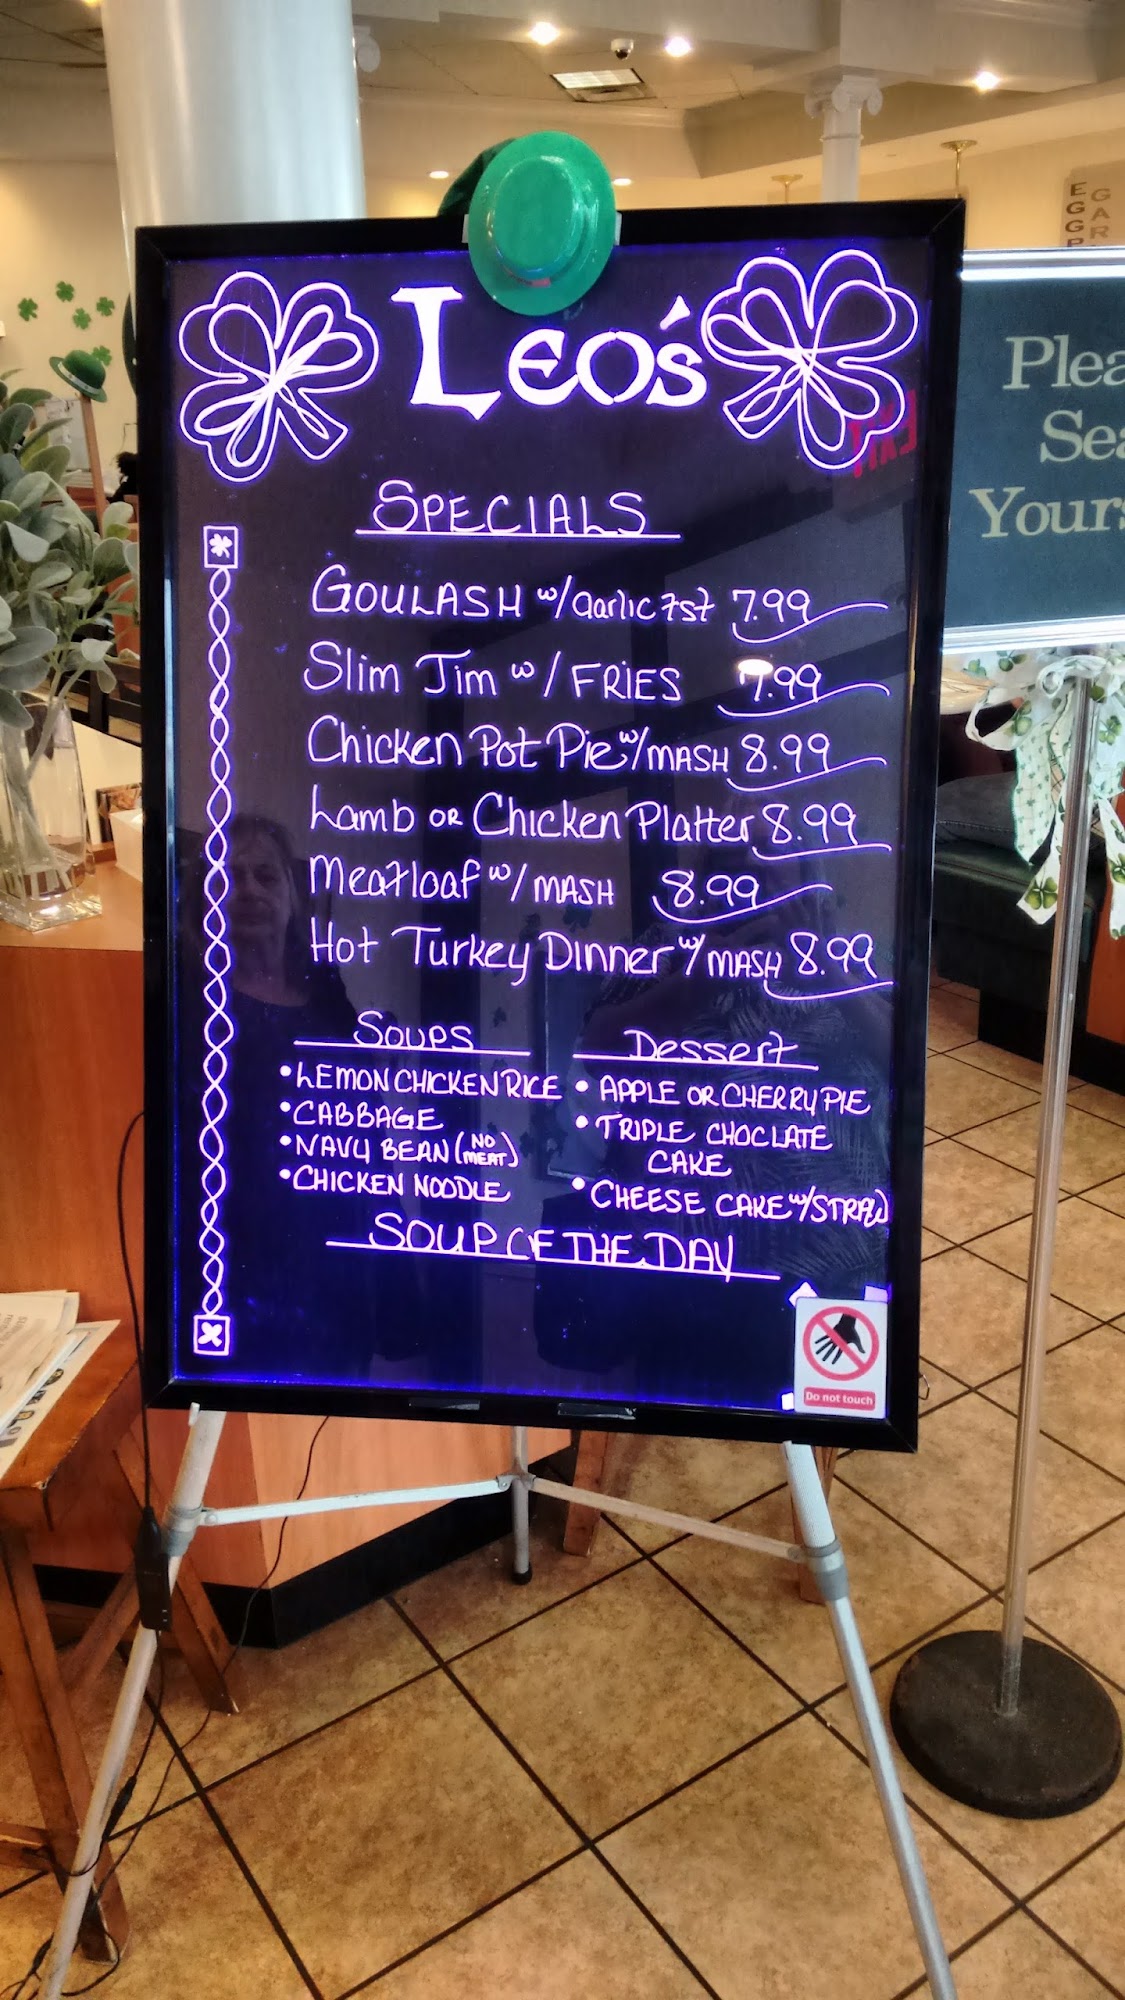 Leo's
SPECIALS
GOULASH w/Garlic Tst 7.99
Slim Jim w/FRIES 7.99
Chicken Pot Pie w/MASH 8.99
Lamb OR Chicken Platter 8.99
Meatloaf w/MASH 8.99
Hot Turkey Dinner w/MASH 8.99
SOUPS
• LEMON CHICKEN RICE
• CABBAGE
• NAVY BEAN (NO MEAT)
• CHICKEN NOODLE
Dessert
• APPLE OR CHERRY PIE
• TRIPLE CHOCLATE
CAKE
• CHEESE CAKE w/STRAW
SOUP OF THE DAY
Do not touch
Plea
Sea
Yours
EGGP
GAR